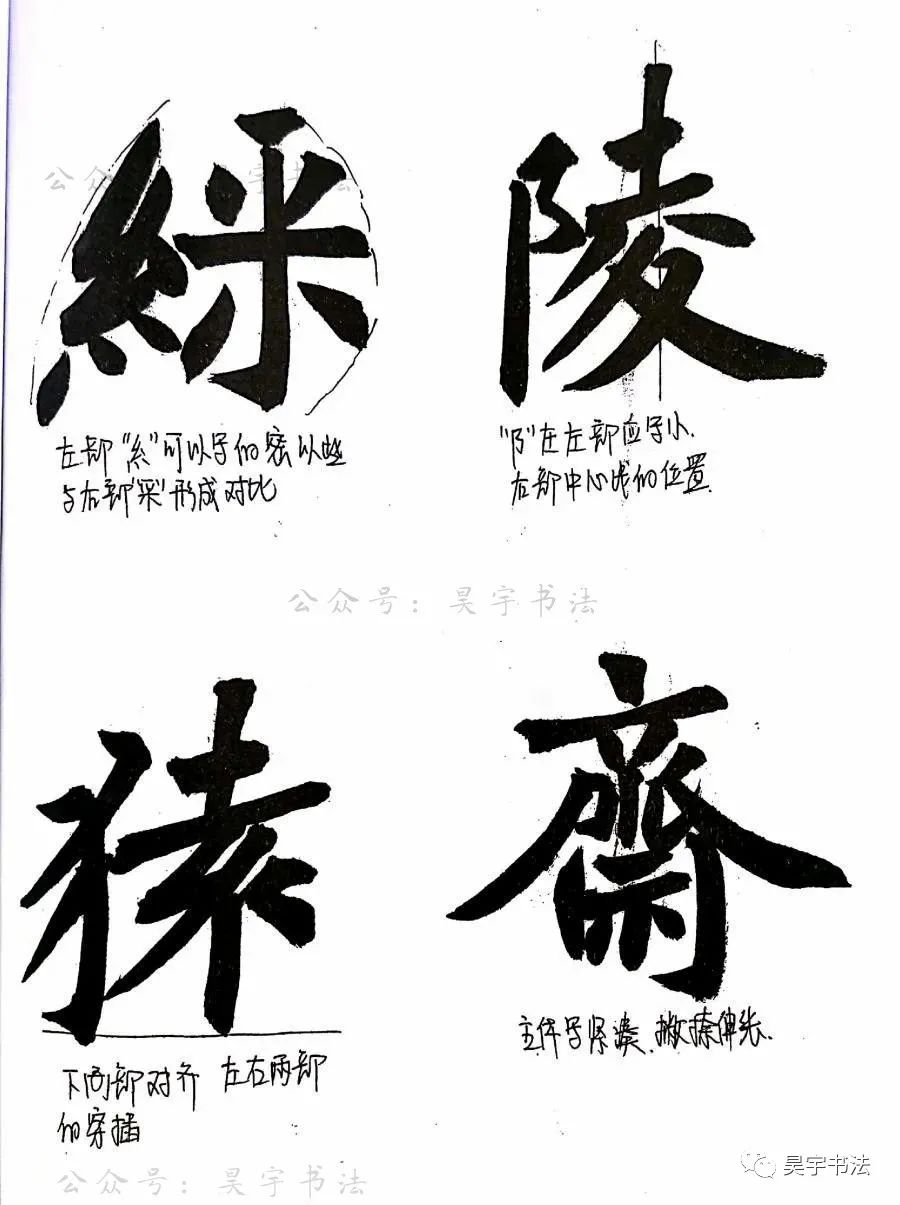 公众号：昊宇书法
綵
陵
左部“糹”可以写的密以些
与右部“采”形成对比
“阝”在左部应写小、
右部中心线的位置.
公众号：昊宇书法
猿
齋
主体写紧凑、撇捺伸张.
部对齐 左右两部
的穿插
昊宇书法
公众号：昊宇书法